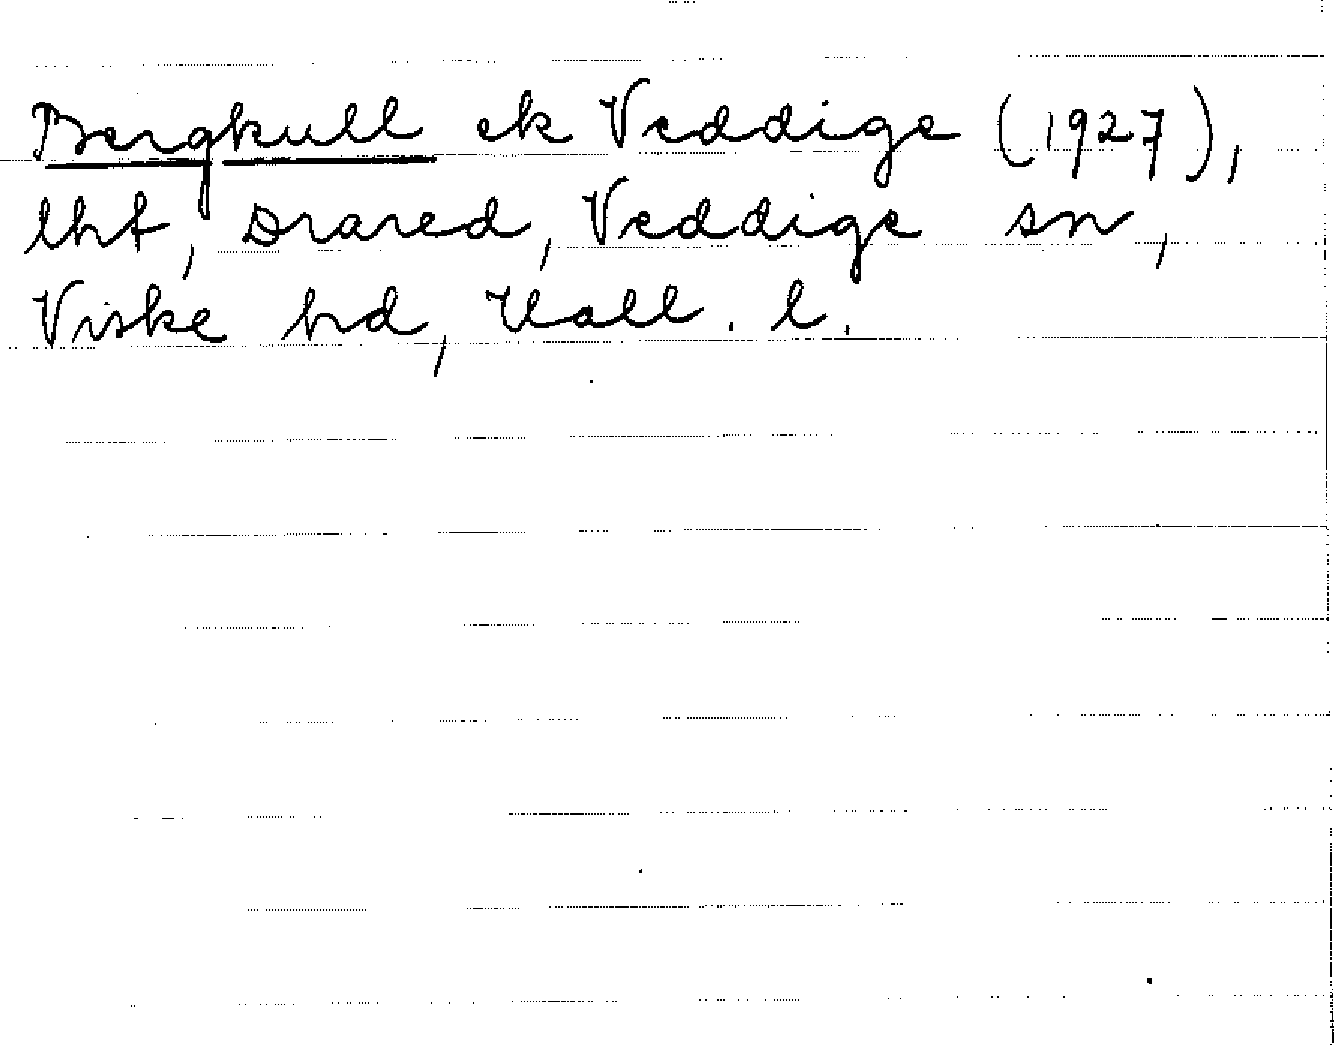 Bergkull ek Veddige (1927),
lht, Drared, Veddige sn,
Viske hd, Hall. l.